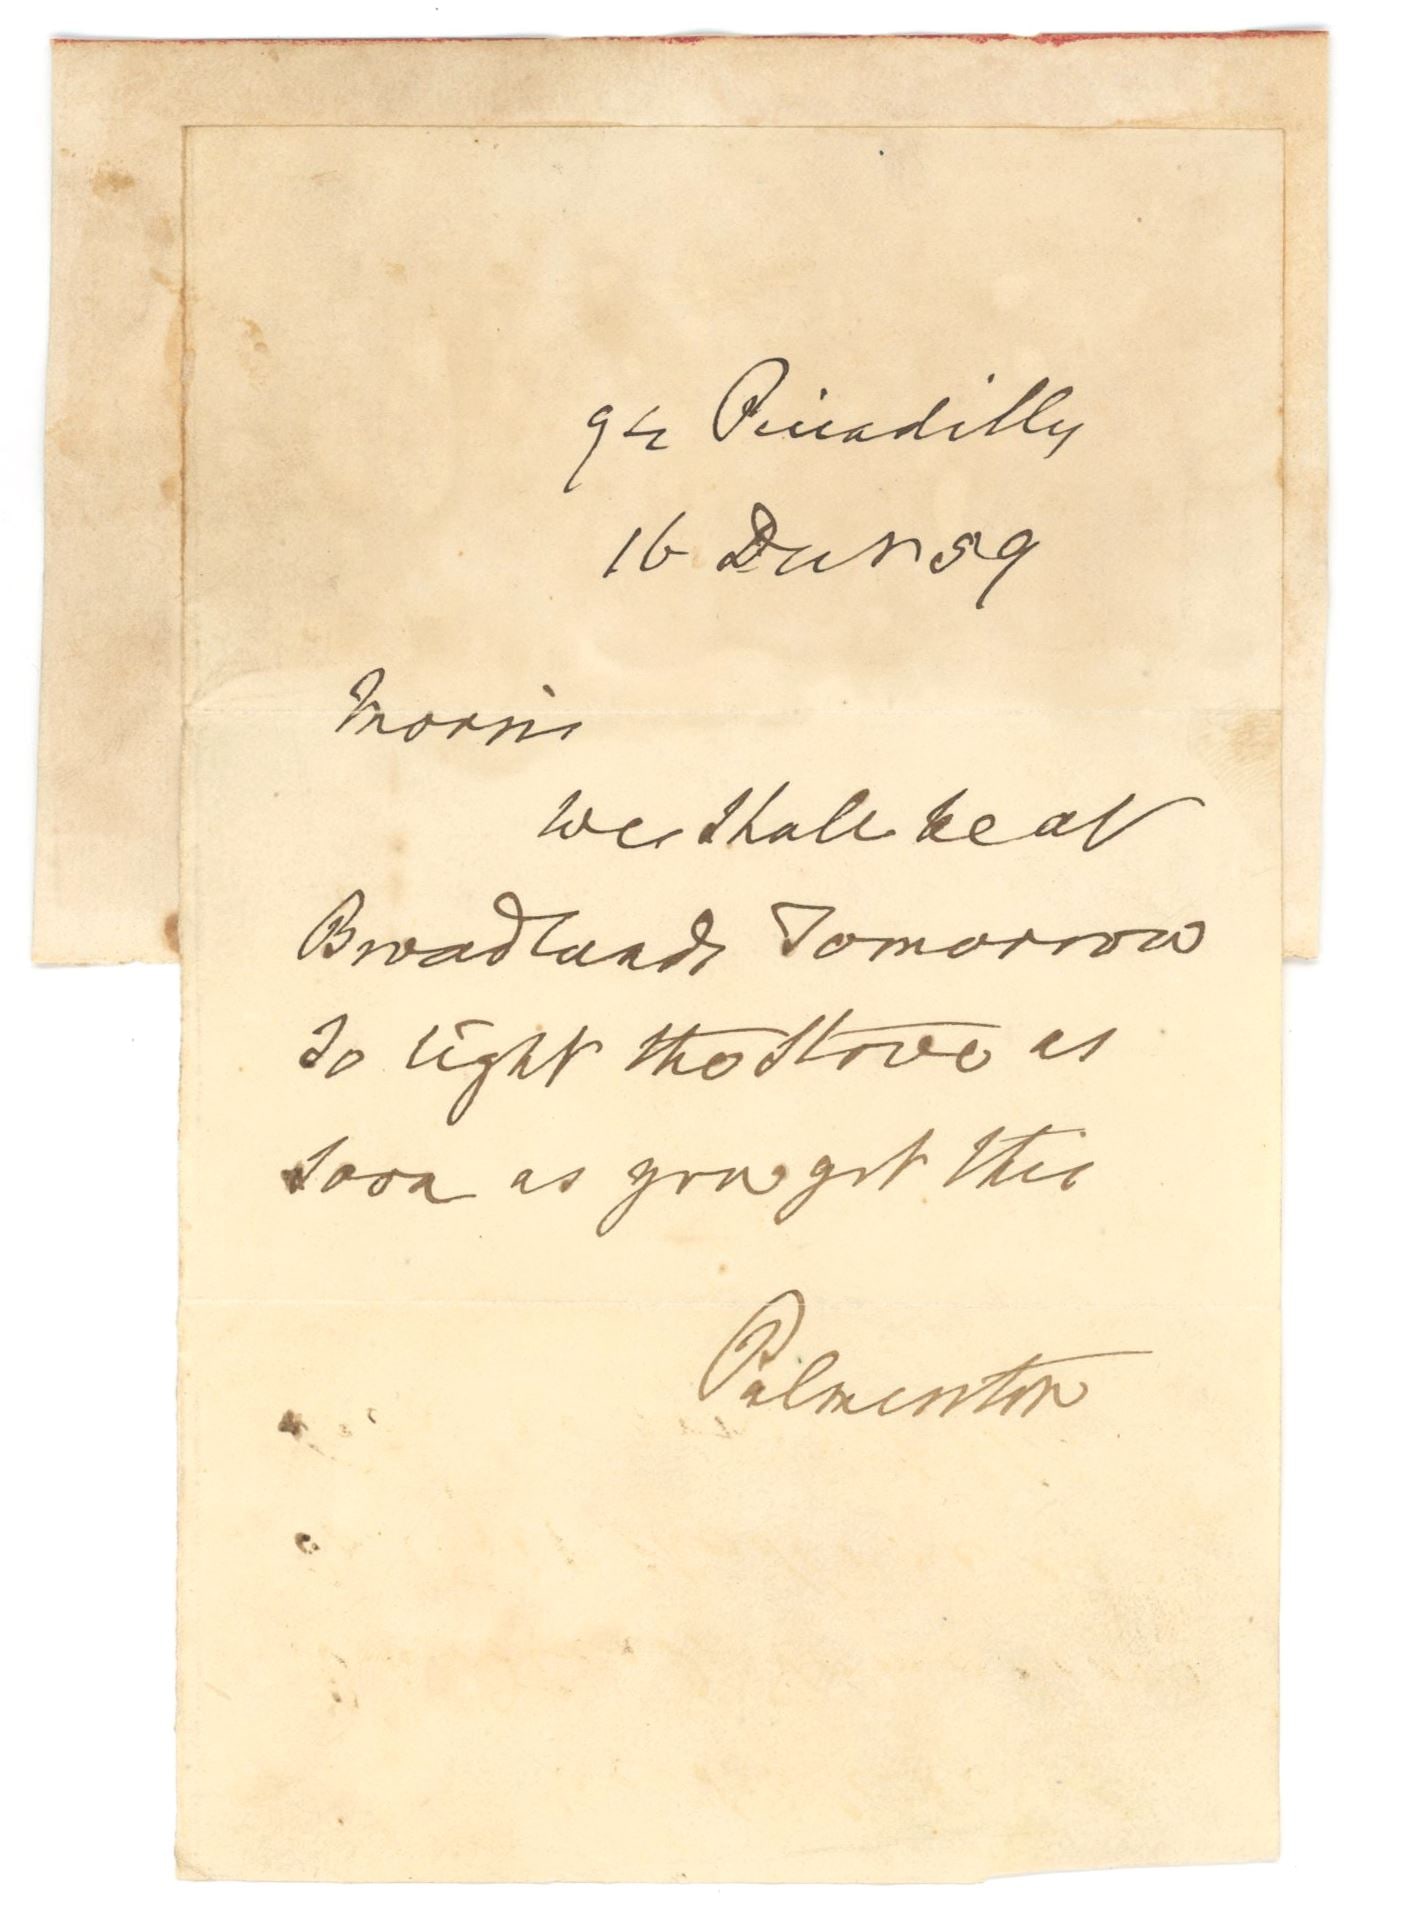 94 Piccadilly
16 Decr 59
Morris
We shall be at
Broadlands Tomorrow
So light the Stove as
Soon as you get this
Palmerston